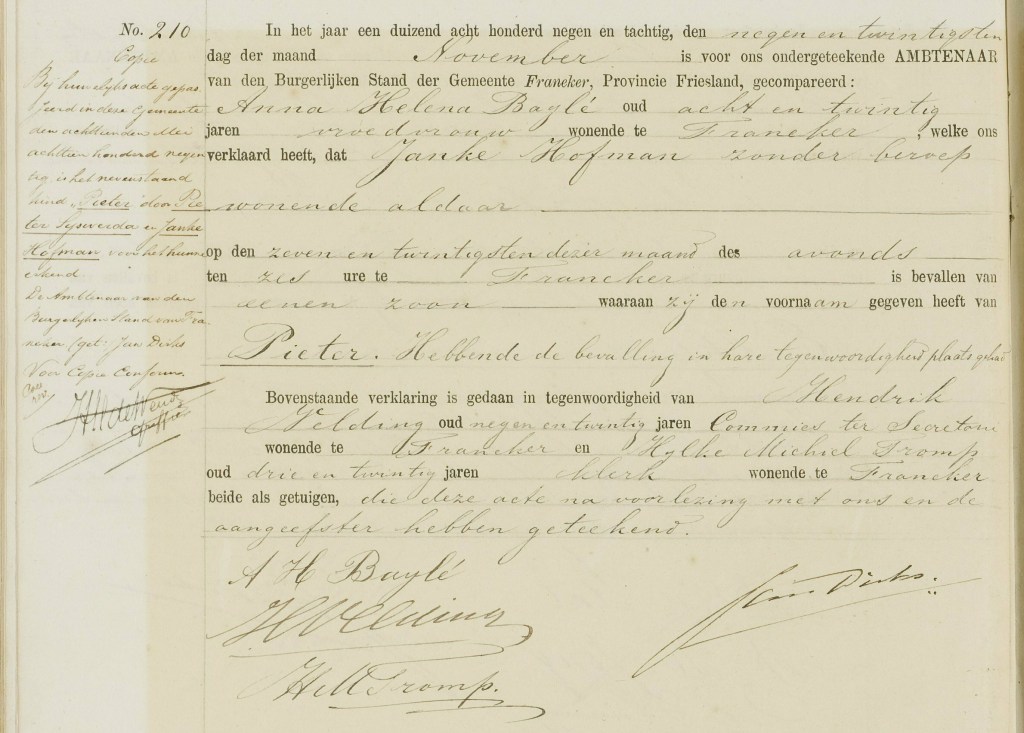 No. 210
Copie
Bij huwelijksacte gepas-
seerd in deze gemeente
den achttienden Mei
achttien honderd negen
tig is het nevenstaand
kind "Pieter" door Pie-
ter Sijswerda en Janke
Hofman voor het hunne
erkend.
De Ambtenaar van den
Burgelijken Stand van Fra-
neker (get: Jan Dirks
Voor Copie Conform.
In het jaar een duizend acht honderd negen en tachtig, den negen en twintigsten
dag der maand November is voor ons ondergeteekende AMBTENAAR
van den Burgerlijken Stand der Gemeente Franeker, Provincie Friesland, gecompareerd:
Anna Helena Baylé oud acht en twintig
jaren vroedvrouw wonende te Franeker, welke ons
verklaard heeft, dat Janke Hofman zonder beroep
wonende aldaar
op den zeven en twintigsten dezer maand des avonds
ten zes ure te Franeker is bevallen van
eenen zoon waaraan zij den voornaam gegeven heeft van
Pieter. Hebbende de bevalling in hare tegenwoordigheid plaats gehad
Bovenstaande verklaring is gedaan in tegenwoordigheid van Hendrik
Velding oud negen en twintig jaren Commies ter Secretarie
wonende te Franeker en Hylke Michiel Tromp
oud drie en twintig jaren klerk wonende te Franeker
beide als getuigen, die deze acte na voorlezing met ons en de
aangeefster hebben geteekend.
A H Baylé
HVelding
Jan Dirks.
HMTromp.